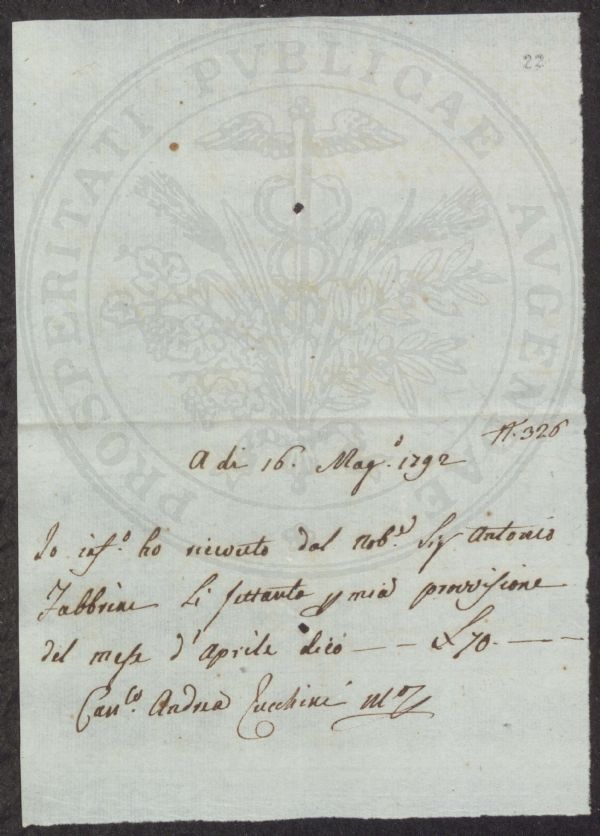 22
PROSPERITATI PVBLICAE AVGENDAE
N. 326
A di 16. Mag.o 1792
Io inf.o ho ricevuto dal Nob.e Sig Antonio
Fabbrini Li settanta p mia provvisione
del mese d'Aprile dico — — £ 70 — —
Can.co Andrea Zucchini